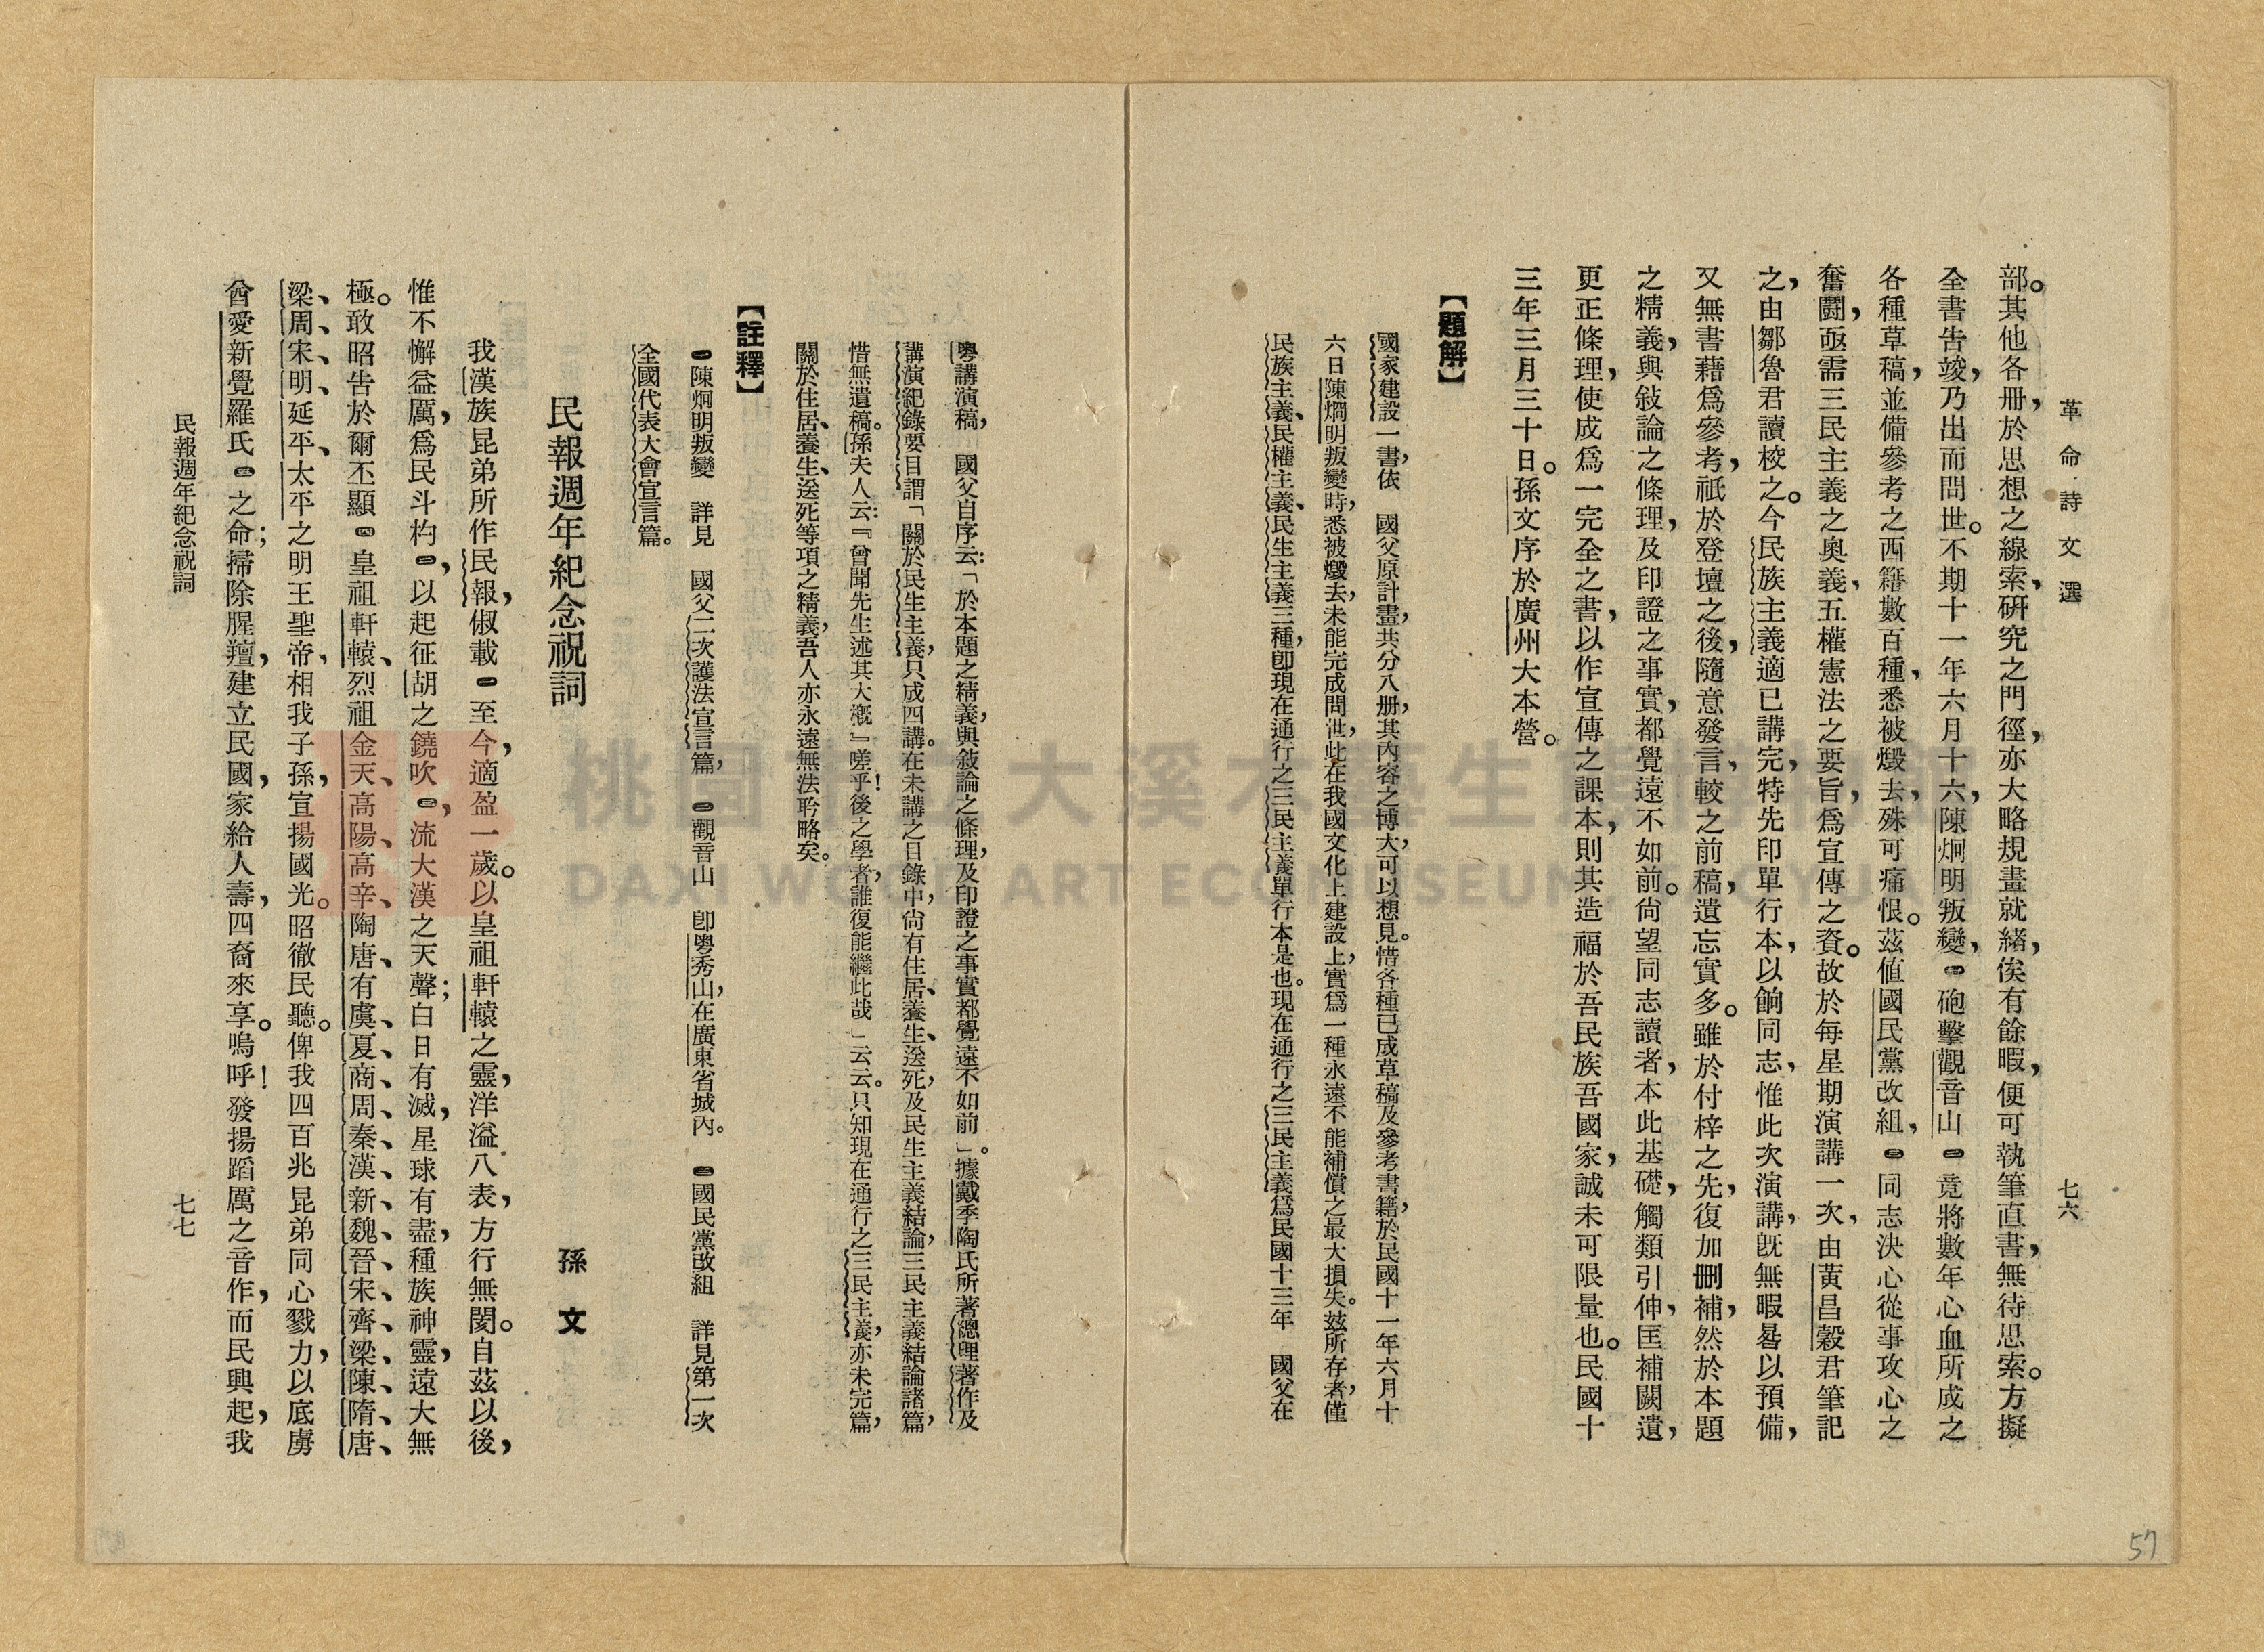 革命詩文選
七六
部。其他各册，於思想之線索，研究之門徑，亦大略規畫就緒，俟有餘暇，便可執筆直書，無待思索。方擬
全書告竣，乃出而問世。不期十一年六月十六，陳炯明叛變，㊀砲擊觀音山㊁竟將數年心血所成之
各種草稿，並備參考之西籍數百種，悉被燬去，殊可痛恨。茲值國民黨改組，㊂同志決心從事攻心之
奮鬪，亟需三民主義之奧義，五權憲法之要旨，爲宣傳之資。故於每星期演講一次，由黃昌穀君筆記
之，由鄒魯君讀校之。今民族主義適已講完，特先印單行本，以餉同志，惟此次演講，旣無暇晷以預備，
又無書藉爲參考，祇於登壇之後，隨意發言，較之前稿，遺忘實多。雖於付梓之先，復加刪補，然於本題
之精義，與敍論之條理，及印證之事實，都覺遠不如前。尙望同志讀者，本此基礎，觸類引伸，匡補闕遺，
更正條理，使成爲一完全之書，以作宣傳之課本，則其造福於吾民族吾國家，誠未可限量也。民國十
三年三月三十日。孫文序於廣州大本營。
【題解】
國家建設一書，依　國父原計畫，共分八册，其內容之博大，可以想見。惜各種已成草稿及參考書籍，於民國十一年六月十
六日陳烱明叛變時，悉被燬去，未能完成問世，此在我國文化上建設上，實爲一種永遠不能補償之最大損失。玆所存者，僅
民族主義、民權主義、民生主義三種，卽現在通行之三民主義單行本是也。現在通行之三民主義爲民國十三年　國父在
粤講演稿，　國父自序云：「於本題之精義，與敍論之條理，及印證之事實都覺遠不如前」。據戴季陶氏所著總理著作及
講演紀錄要目謂「關於民生主義，只成四講。在未講之目錄中，尙有住居、養生、送死，及民生主義結論，三民主義結論諸篇，
惜無遺稿。孫夫人云：『曾聞先生述其大概』嗟乎！後之學者，誰復能繼此哉」云云。只知現在通行之三民主義，亦未完篇，
關於住居、養生、送死等項之精義，吾人亦永遠無法聆略矣。
【註釋】
㊀陳炯明叛變　詳見　國父二次護法宣言篇，　㊁觀音山　卽粤秀山，在廣東省城內。　㊂國民黨改組　詳見第一次
全國代表大會宣言篇。
民報週年紀念祝詞
孫　文
我漢族昆弟所作民報，俶載㊀至今，適盈一歲。以皇祖軒轅之靈，洋溢八表，方行無閡。自茲以後，
惟不懈益厲，爲民斗杓㊁，以起征胡之鐃吹㊂，流大漢之天聲；白日有滅，星球有盡，種族神靈，遠大無
極。敢昭告於爾丕顯㊃皇祖軒轅、烈祖金天、高陽、高辛、陶唐、有虞、夏、商、周、秦、漢、新、魏、晉、宋、齊、梁、陳、隋、唐、
梁、周、宋、明、延平、太平之明王聖帝，相我子孫，宣揚國光。昭徹民聽。俾我四百兆昆弟同心戮力，以底虜
酋愛新覺羅氏㊄之命；掃除腥羶，建立民國，家給人壽，四裔來享。嗚呼！發揚蹈厲之音作，而民興起，我
民報週年紀念祝詞
七七
57
桃園市立大溪木藝生態博物館
DAXI WOOD ART ECOMUSEUM, TAOYUAN